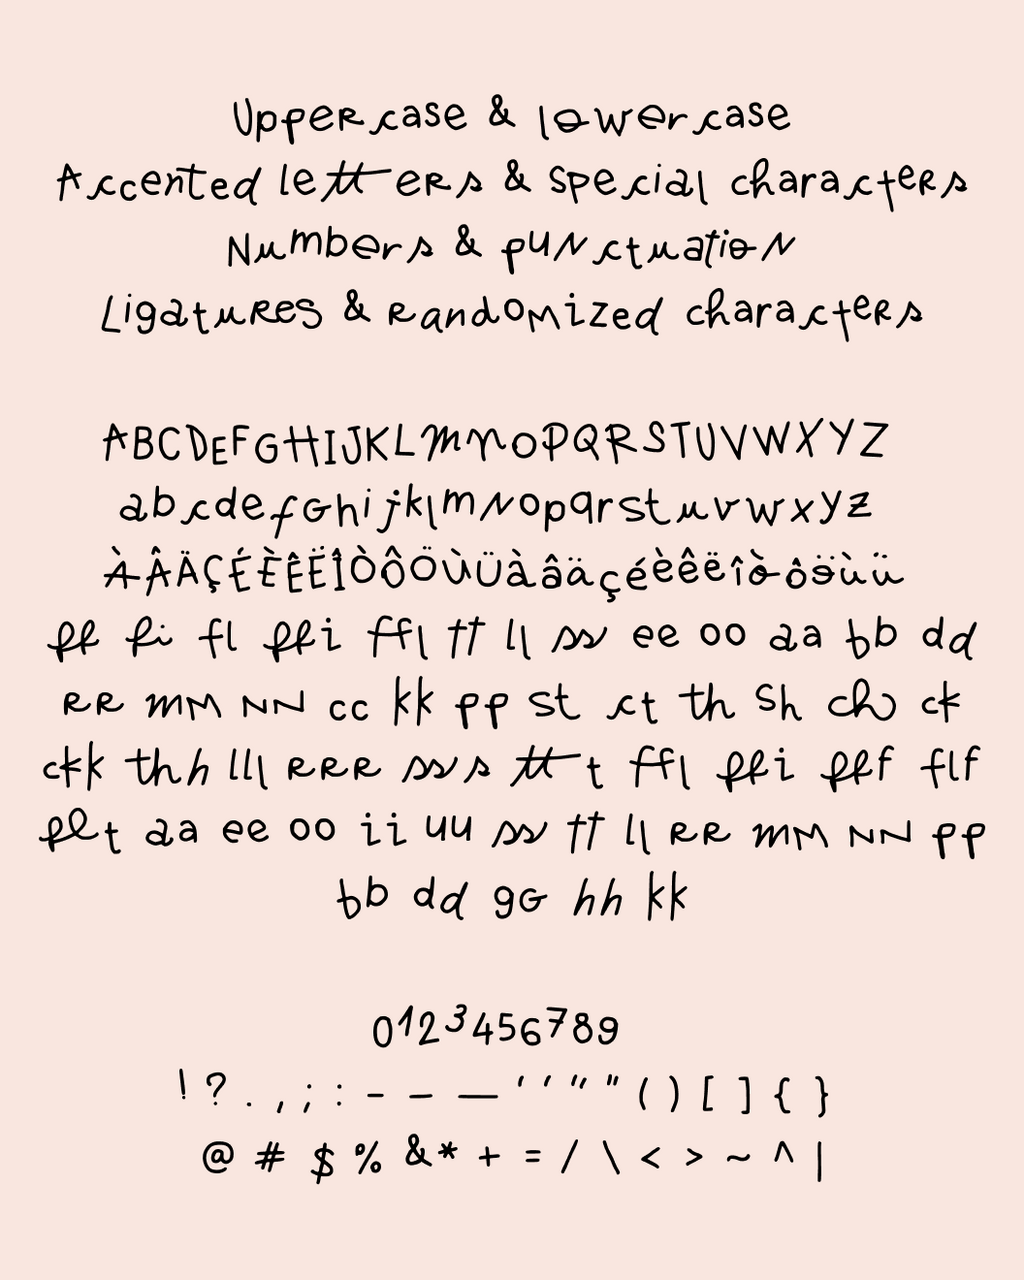 Uppercase & lowercase
Accented letters & special characters
Numbers & punctuation
Ligatures & Randomized characters
ABCDEFGHIJKLMNOPQRSTUVWXYZ
abcdefghijklmnopqrstuvwxyz
ÀÂÄÇÉÈÊËÎÒÔÖÙÜàâäçéèêëîòôöùü
ff fi fl ffi ffl tt ll ss ee oo aa bb dd
RR mM NN cc kk pp st ct th Sh ch ck
ckk thh lll RRR sss ttt ffl ffi fff flf
flt aa ee oo ii uu ss tt ll RR mM NN pp
bb dd gG hh kk
0123456789
! ? . , ; : - – — ' ' " " ( ) [ ] { }
@ # $ % & * + = / \ < > ~ ^ |